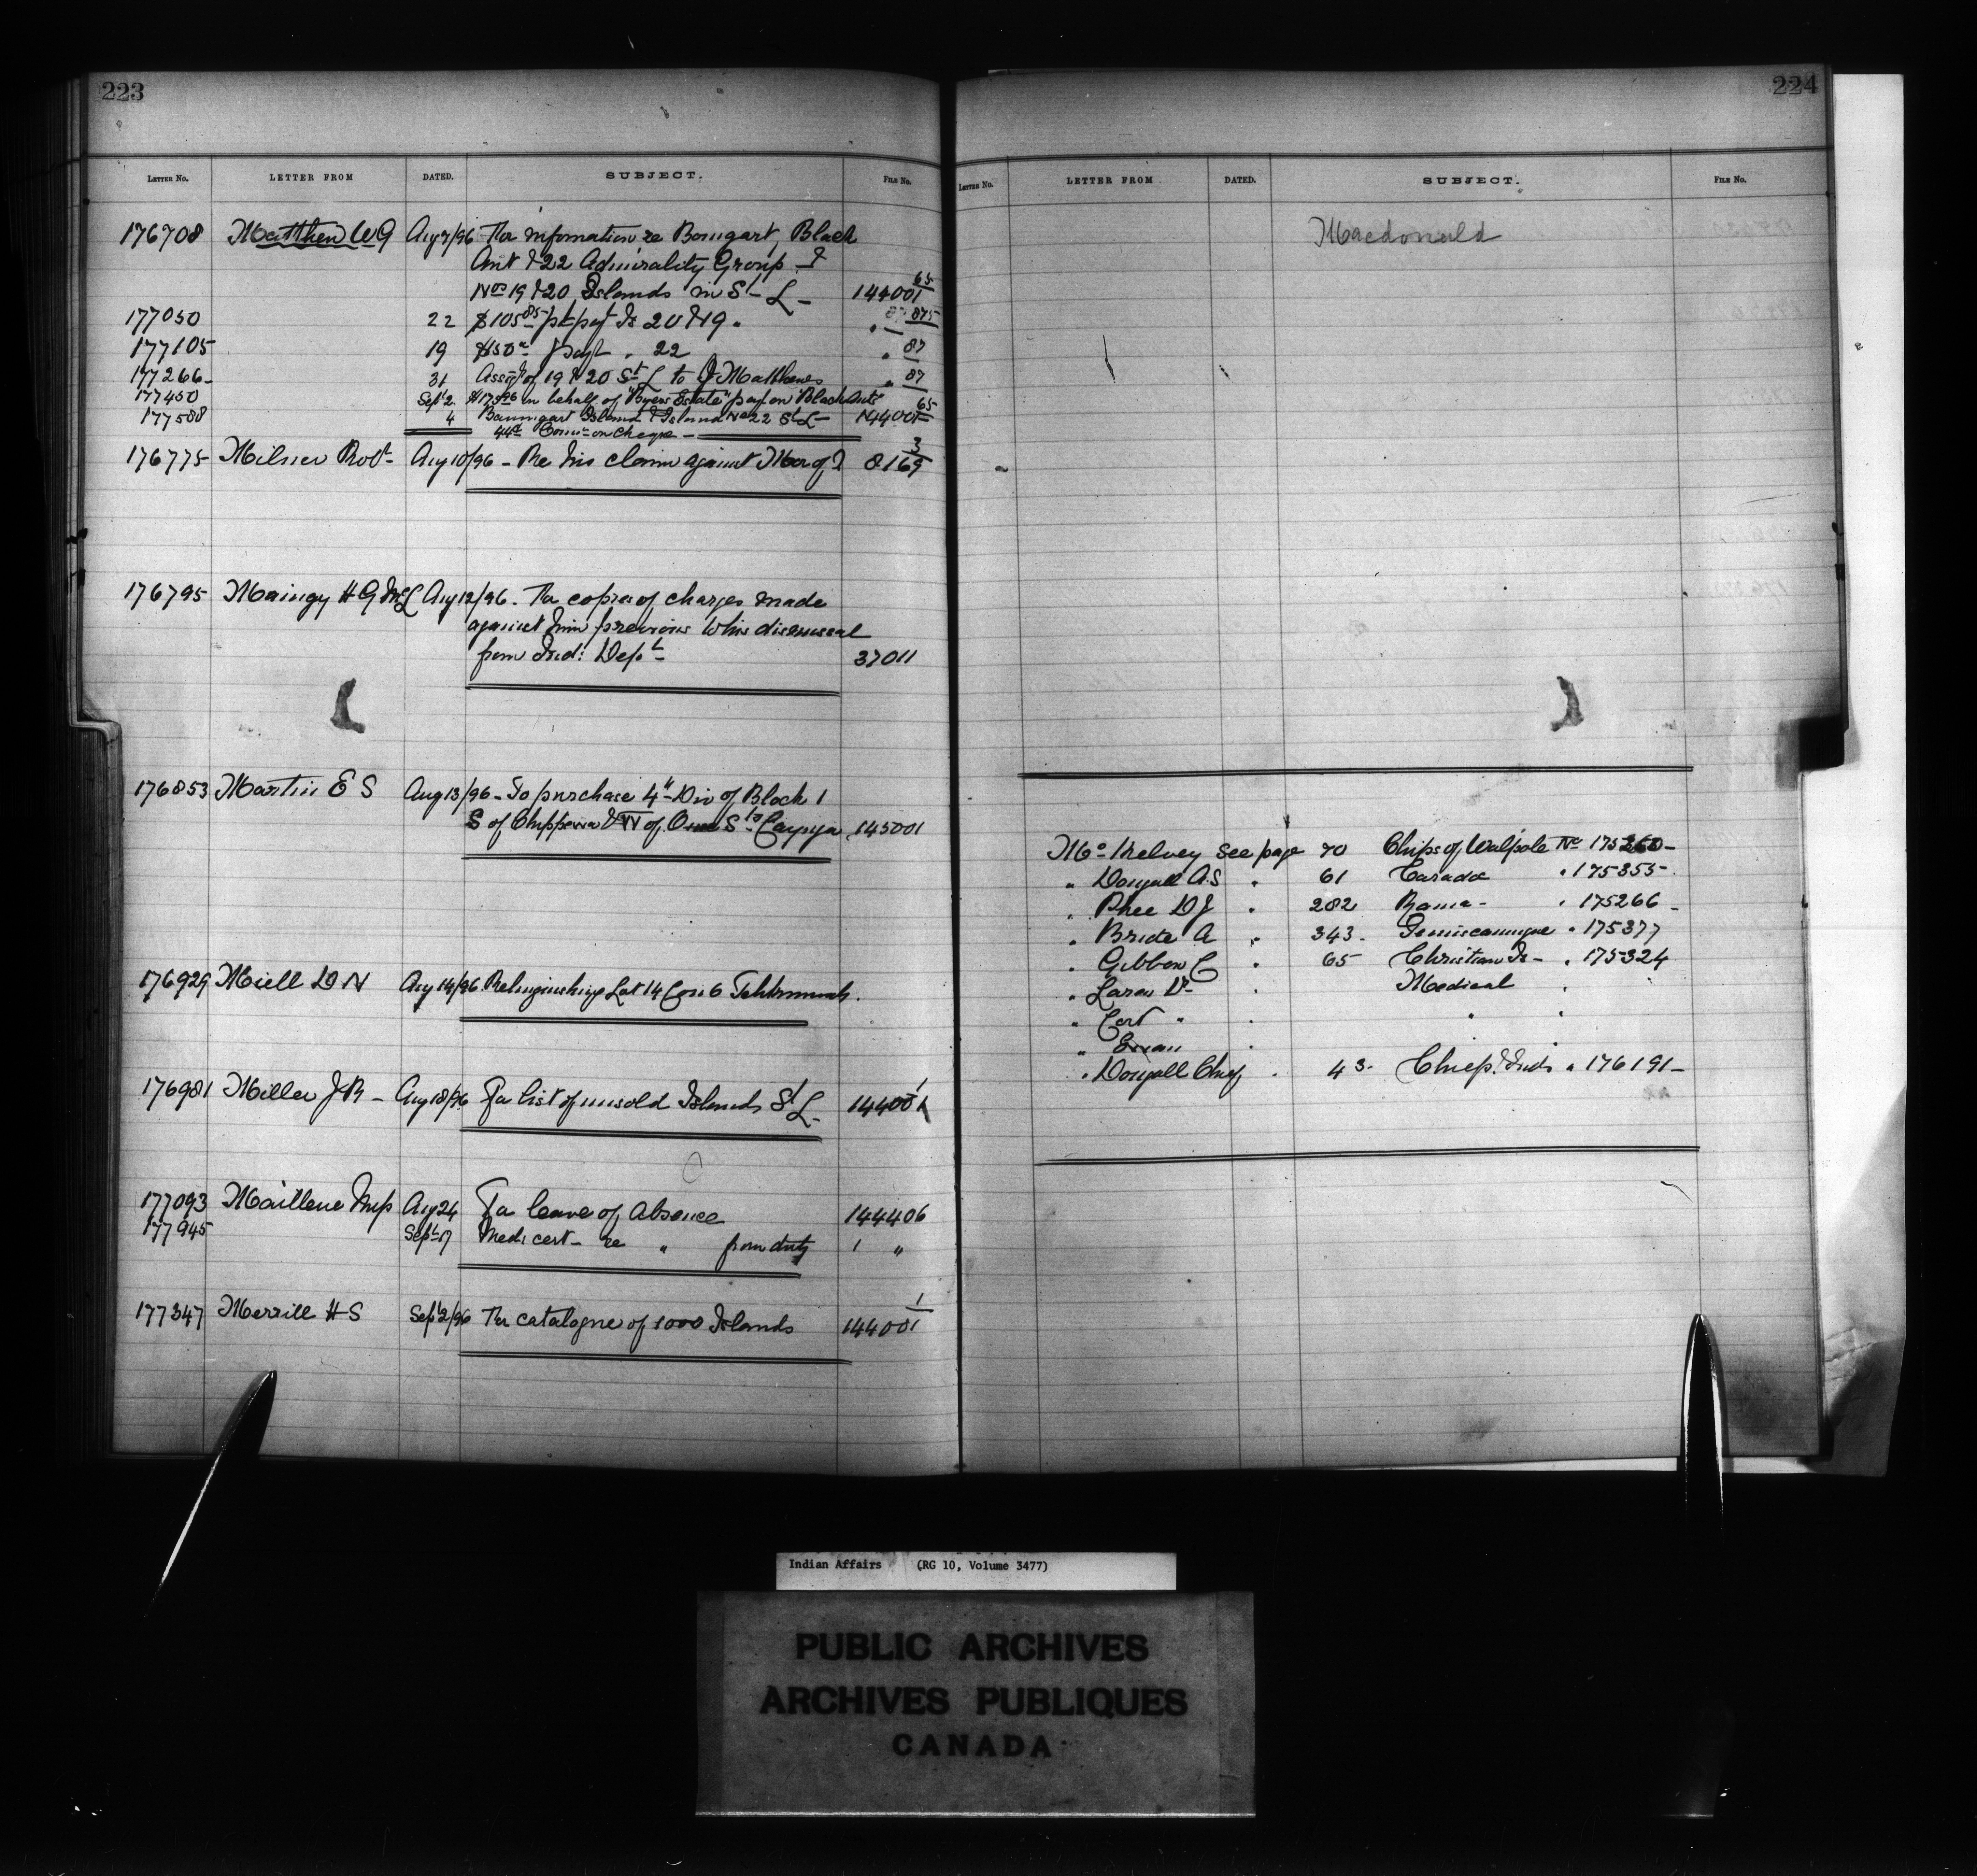 223
LETTER No. LETTER FROM DATED. SUBJECT. FILE No.
176708 Matthew W G Aug 7/96 For information re Bomgart, Black
Ant & 22 Admirality Group &
Nos 19 & 20 Islands in St L - 144001 65
177050 22 $105 85 pt payt Is 20 & 19 " 87 875
177105 19 $150 payt " 22 " 87
177266 31 Assigt of 19 & 20 St L to J Matthews " 87
177450 Sept 2 in behalf of "Byers Estate" pay on Black Ants 65
177588 4 Baumgart Island & Island No 22 St L - 144001
44¢ Comn on cheque -
176775 Milner Robt - Aug 10/96 - Re his claim against 8169 3
176795 Maingy H G McL Aug 12/96. For copies of charges made
against him previous to his dismissal
from Ind: Dept 37011
176853 Martin E S Aug 13/96 - To purchase 4th Div of Block 1
S of Chippewa & W of Sts Cayuga 145001
176929 Miell D N Aug 14/96. Relinquishing Lot 14 Con 6
176981 Miller J R - Aug 18/96 For list of unsold Islands St L - 144001 1
177093 Maillene Aug 24 For leave of Absence 144406
177945 Sept 17 Medi cert - re " from duty 1 "
177347 Merrill H S Sept 2/96 For catalogue of 1000 Islands 144001 1
224
LETTER No. LETTER FROM DATED. SUBJECT. FILE No.
Macdonald
Mc Kelvey see page 70 Chips of Walpole No 175260 -
" Dougall A.S " 61 Caradoc " 175355 -
" Phee D J " 282 Rama - " 175266 -
" Bride A " 343 - Temiscamingue " 175377
" Gibbon C " 65 Christian Is - " 175324
" Laren Dr " Medical "
" Cort " " " "
" Ewan "
" Dougall Chief " 43 - Chiefs & Inds " 176191 -
Indian Affairs (RG 10, Volume 3477)
PUBLIC ARCHIVES
ARCHIVES PUBLIQUES
CANADA